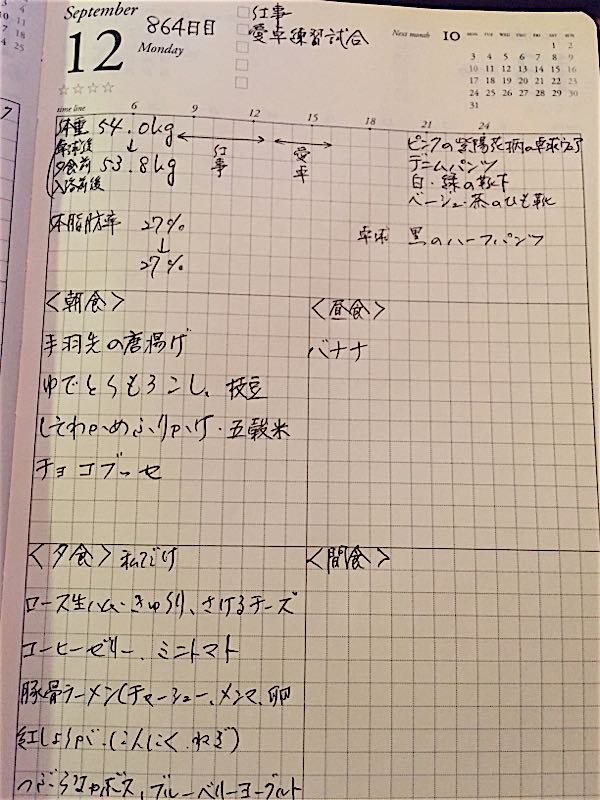 September
12
Monday
864日目
仕事
愛卓練習試合
Next month 10
MON TUE WED THU FRI SAT SUN
1 2
3 4 5 6 7 8 9
10 11 12 13 14 15 16
17 18 19 20 21 22 23
24 25 26 27 28 29 30
31
time line 6 9 12 15 18 21 24
体重 54.0kg
卓球後 ↓
夕食前 53.8kg
入浴前後
仕事
愛卓
ピンクの紫陽花柄の卓球ウェア
デニムパンツ
白・緑の靴下
ベージュ・茶のひも靴
体脂肪率 27%
↓
27%
卓球 黒のハーフパンツ
<朝食>
手羽先の唐揚げ
ゆでとうもろこし、枝豆
しそわかめふりかけ・五穀米
チョコブッセ
<昼食>
バナナ
<夕食> 私だけ
ロース生ハム・きゅうり、さけるチーズ
コーヒーゼリー、ミニトマト
豚骨ラーメン(チャーシュー、メンマ、卵
紅しょうが、にんにく、ねぎ)
つぶらなカボス、ブルーベリーヨーグルト
<間食>